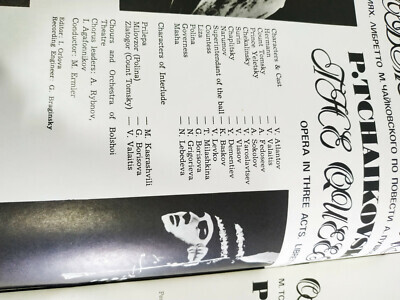 ИЯХ. ЛИБРЕТТО М. ЧАЙКОВСКОГО ПО ПОВЕСТИ А.
P. TCHAIKOVS
THE QUEE
OPERA IN THREE ACTS.
Characters & Cast
Hermann — V. Atlantov
Count Tomsky — V. Valaitis
Prince Yeletsky — A. Fedoseev
Chekalinsky — A. Sokolov
Surin — V. Yaroslavtsev
Chaplitsky — V. Vlasov
Narumov — Y. Dementiev
Superintendant of the ball — Y. Baskov
Countess — V. Levko
Liza — T. Milashkina
Polina — G. Borisova
Governess — N. Grigorieva
Masha — N. Lebedeva
Characters of Interlude
Prilepa — M. Kasrashvili
Milovzor (Polina) — G. Borisova
Zlatogor (Count Tomsky) — V. Valaitis
Chours and Orchestra of Bolshoi
Theatre
Chorus leaders: A. Rybnov,
I. Agafonnikov
Conductor: M. Ermler
Editor: I. Orlova
Recording Engineer: G. Braginsky